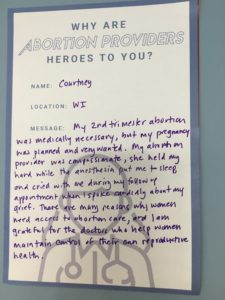 WHY ARE
ABORTION PROVIDERS
HEROES TO YOU?
NAME: Courtney
LOCATION: WI
MESSAGE: My 2nd trimester abortion
was medically necessary, but my pregnancy
was planned and very wanted. My abortion
provider was compassionate, she held my
hand while the anesthesia put me to sleep
and cried with me during my follow up
appointment when I spoke candidly about my
grief. There are many reasons why women
need access to abortion care, and I am
grateful for the doctors who help women
maintain control of their own reproductive
health.